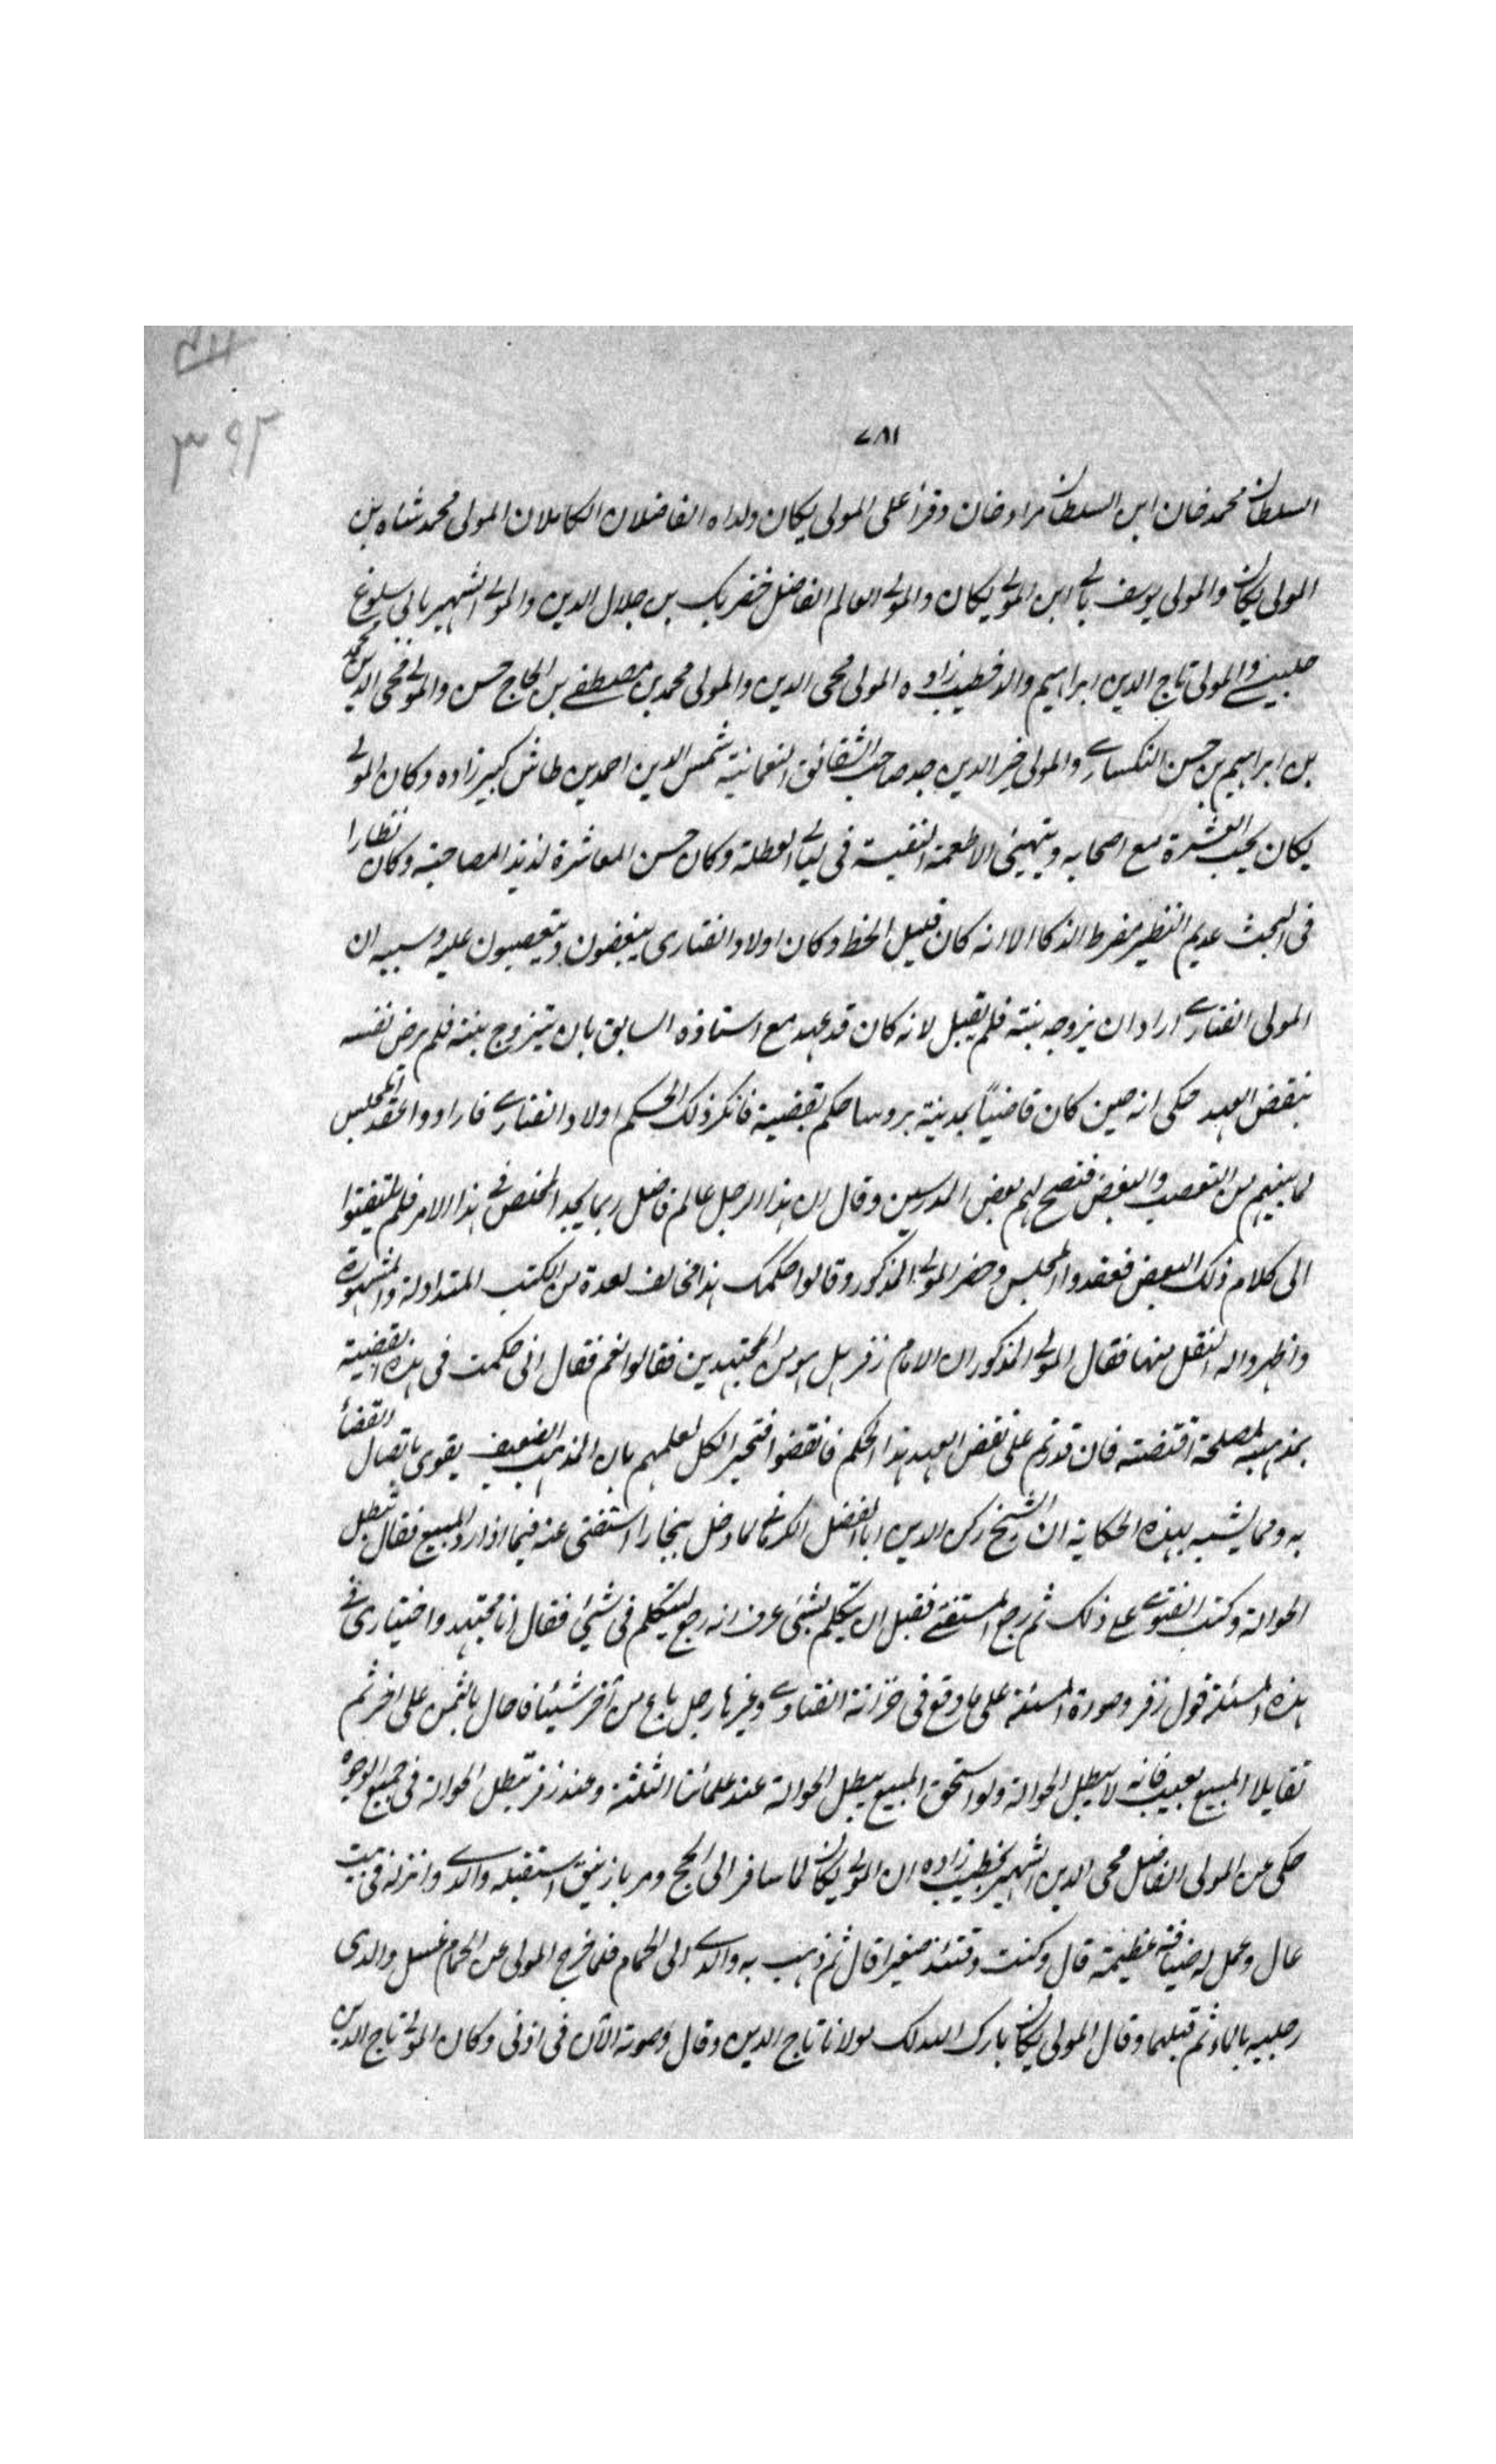 ۳۹۲
۷۸۱
السلطان محمد خان ابن السلطان مراد خان وقرأ على المولى يكان ولداه الفاضلان الكاملان المولى محمد شاه بن
المولى يكان والمولى يوسف بالى ابن المولى يكان والمولى العالم الفاضل خضر بك بن جلال الدين والمولى الشهير باى سلوغ
چلبى والمولى تاج الدين ابراهيم والد خطيب زاده المولى محى الدين والمولى محمد بن مصطفى بن الحاج حسن والمولى محى الدين محمد
بن ابراهيم بن حسن النكسارى والمولى خير الدين جد صاحب الشقائق النعمانية شمس الدين احمد بن طاش كبير زاده وكان المولى
يكان يحب العشرة مع اصحابه ويتهيئ الاطعمة النفيسة فى ليالى العطلة وكان حسن المعاشرة لذيذ المصاحبة وكان نظارا
فى البحث عديم النظير مفرط الذكا الا انه كان قليل الحظ وكان اولاد الفنارى يبغضون ويتعصبون عليه وسببه ان
المولى الفنارى اراد ان يزوجه بنته فلم يقبل لانه كان قد عهد مع استاذه السابق بان يتزوج بنته فلم يرض نفسه
بنقض العهد حكى انه حين كان قاضيًا بمدينة بروسا حكم بقضية فانكر ذلك الحكم اولاد الفنارى فارادوا عقد المجلس
لما بينهم من التعصب والبغض فنصح لهم بعض المدرسين وقال ان هذا الرجل عالم فاضل ربما يجد المخلص فى هذا الامر فلم يلتفتوا
الى كلام ذلك البعض فعقدوا المجلس وحضر المولى المذكور وقالوا حكمك هذا مخالف لعدة من الكتب المتداولة والمشهورة
واظهروا له النقل منها فقال المولى المذكور ان الامام زفر هل هو من المجتهدين فقالوا نعم فقال انى حكمت فى هذه القضية
بمذهبه لمصلحة اقتضته فان قدرتم على نقض العهد هذا الحكم فانقضوا فتحير الكل لعلمهم بان المذهب الضعيف يقوى باتصال القضأ
به ومما يشبه بهذه الحكاية ان الشيخ ركن الدين ابا الفضل الكرمانى لما دخل بخارا استفتى عنه فيما اذا رد المبيع فقال تبطل
الحوالة وكتب الفتوى على ذلك ثم رجع المستفتى فقبل ان يتكلم بشئ عرف انه رجع ليتكلم فى شئ فقال انا مجتهد واختيارى فى
هذه المسئلة قول زفر وصورة المسئلة على ما وقع فى خزانة الفتاوى وغيرها رجل باع من آخر شيئا فاحال بالثمن على اخر ثم
تقايلا المبيع بعيب فانه لا يبطل الحوالة ولو استحق المبيع يبطل الحوالة عند علمائنا الثلثة وعند زفر تبطل الحوالة فى جميع الوجوه
حكى عن المولى الفاضل محى الدين الشهير بخطيب زاده ان المولى يكان لما سافر الى الحج ومر بازنيق استقبله والدى وانزله فى بيت
عال وعمل له ضيافة عظيمة قال وكنت وقتئذ صغيرا قال ثم ذهب به والدى الى الحمام فلما خرج المولى عن الحمام غسل والدى
رجليه بالماء ثم قبلهما وقال المولى يكان بارك الله لك مولانا تاج الدين وقال وصوته الآن فى اذنى وكان المولى تاج الدين